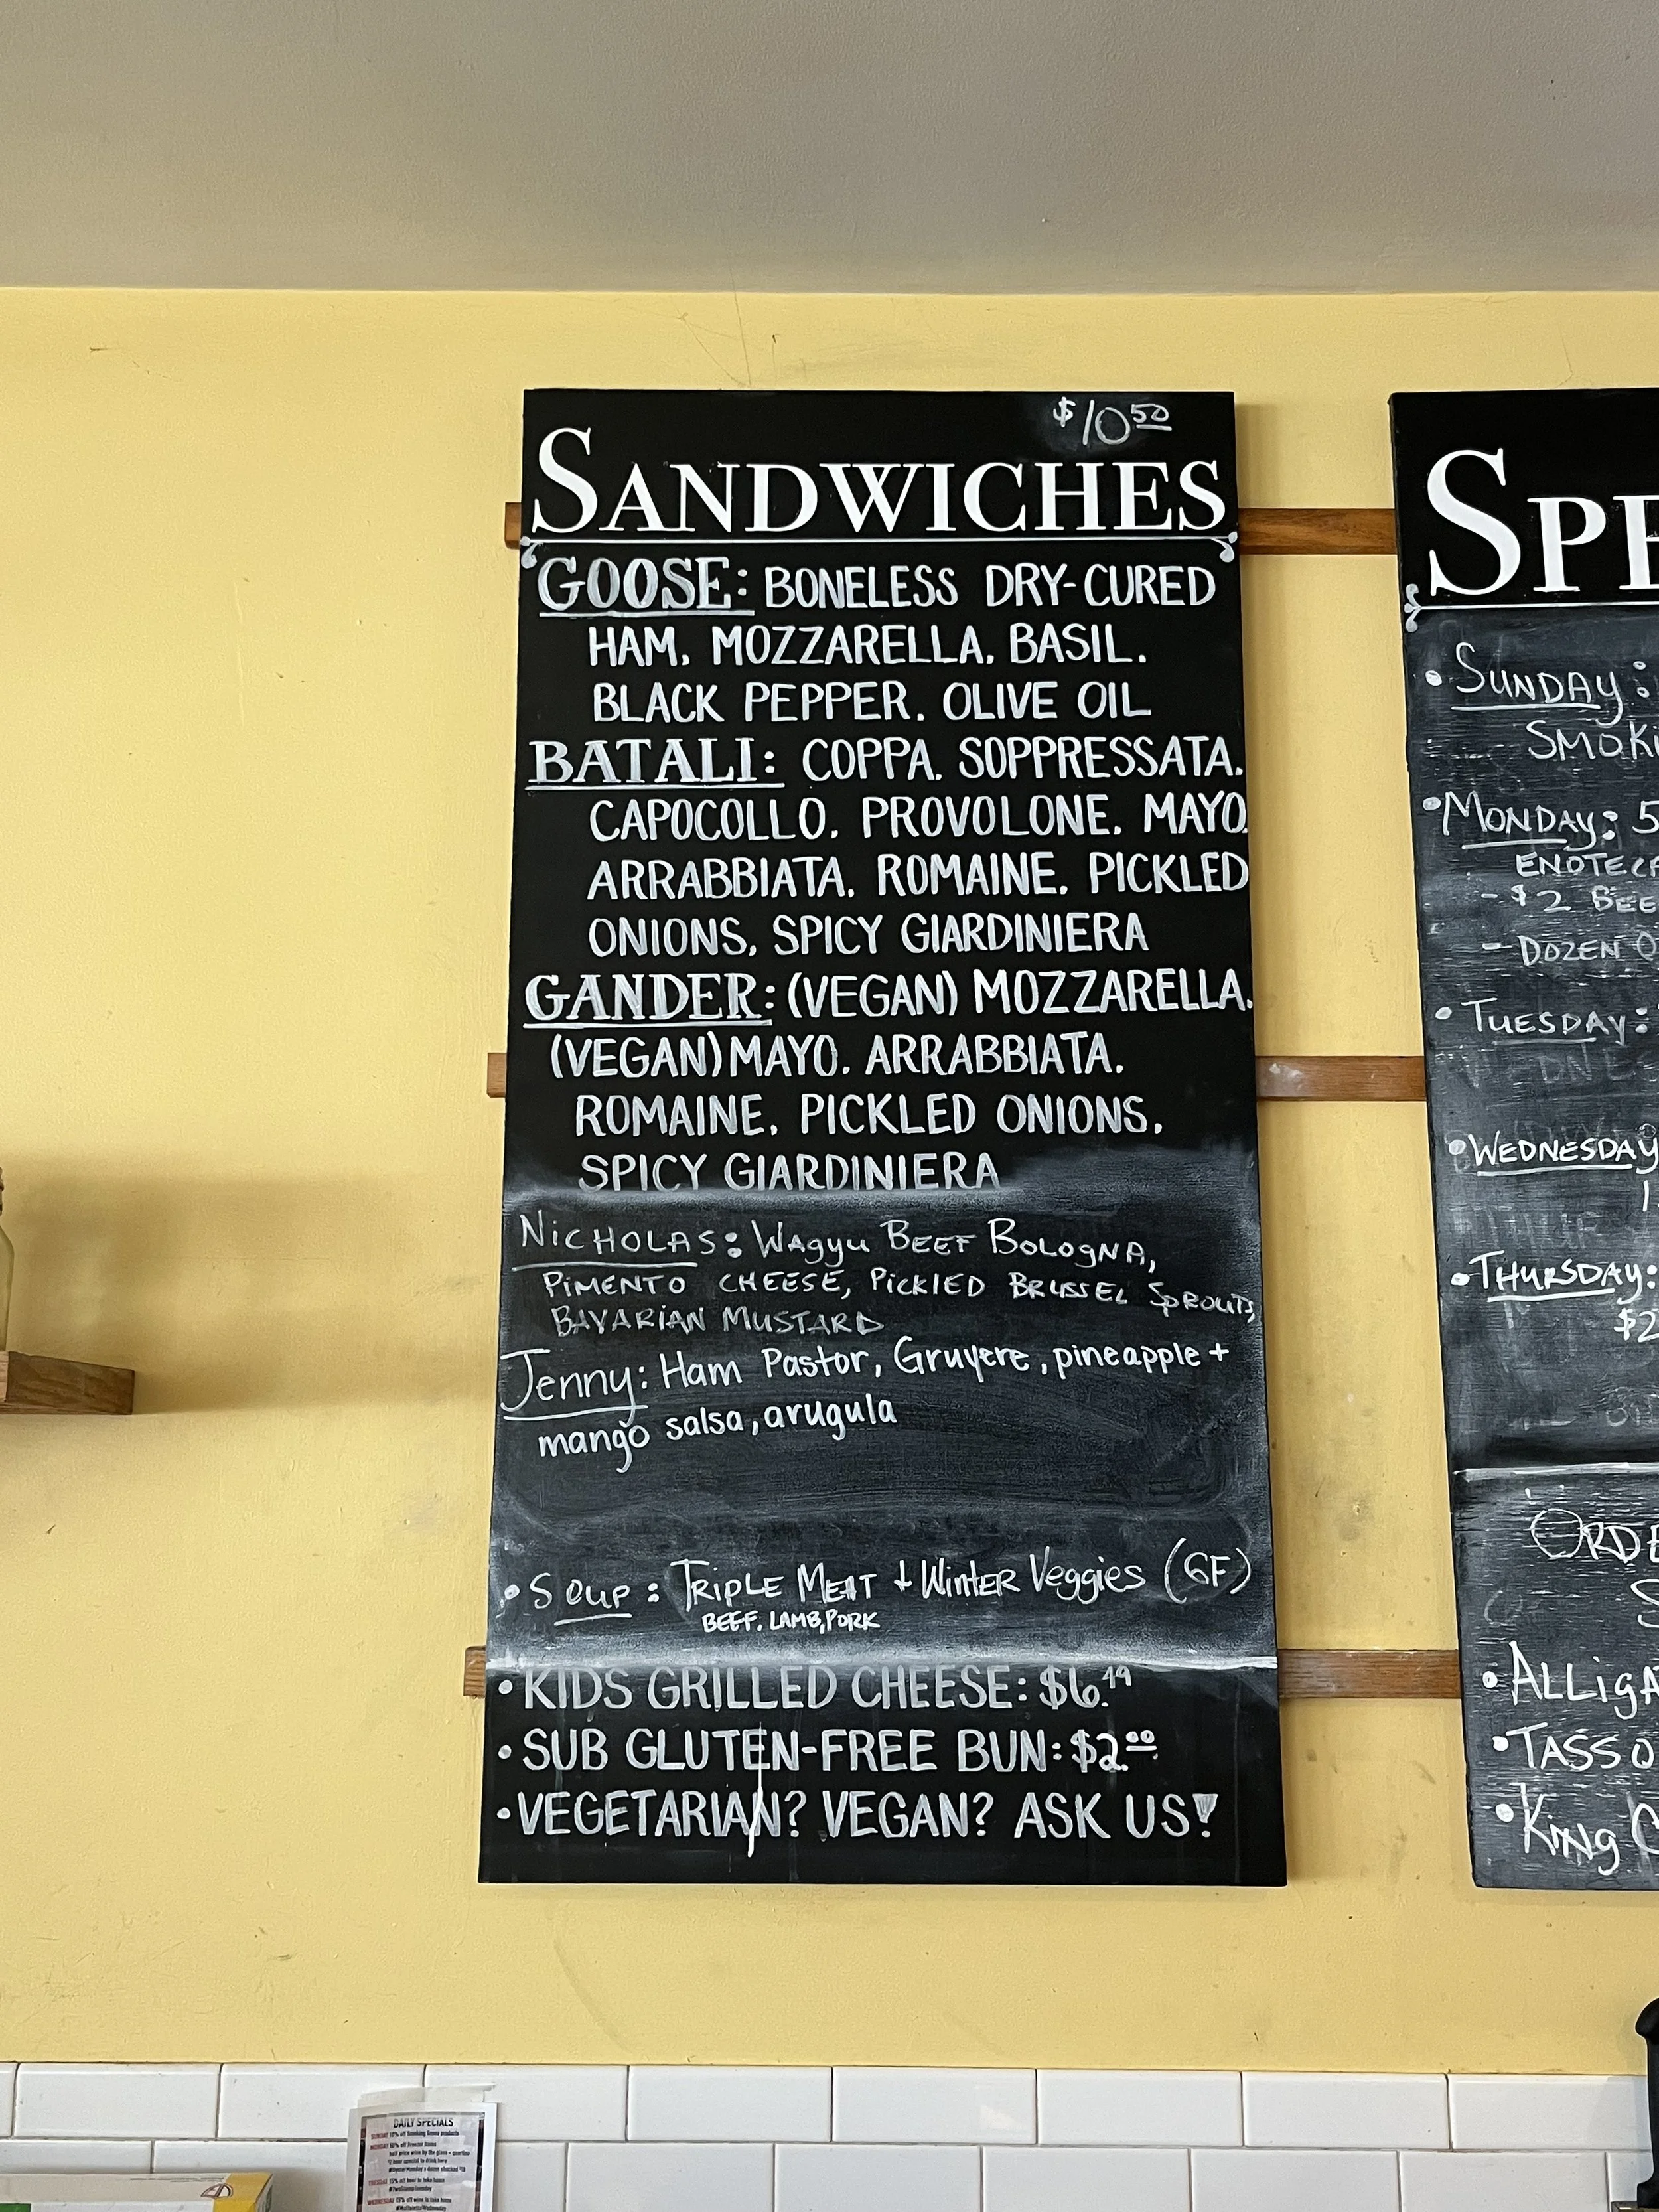 $10.50
SANDWICHES
GOOSE: BONELESS DRY-CURED
HAM. MOZZARELLA. BASIL.
BLACK PEPPER. OLIVE OIL
BATALI: COPPA. SOPPRESSATA.
CAPOCOLLO. PROVOLONE. MAYO.
ARRABBIATA. ROMAINE. PICKLED
ONIONS. SPICY GIARDINIERA
GANDER: (VEGAN) MOZZARELLA.
(VEGAN) MAYO. ARRABBIATA.
ROMAINE. PICKLED ONIONS.
SPICY GIARDINIERA
NICHOLAS: WAgyu BEEF BOLOgNA,
PiMENTO CHEESE, PiCKlED BRUSSEL SPROUTS,
BAVARiAN MUSTARD
Jenny: Ham Pastor, Gruyere, pineapple +
mango salsa, arugula
• SOUP: TRiPLE MEAT + WiNTER Veggies (GF)
BEEF, LAMB, PORK
• KIDS GRILLED CHEESE: $6.49
• SUB GLUTEN-FREE BUN: $2.00
• VEGETARIAN? VEGAN? ASK US!
SPE
• SUNDAY:
SMOKi
• MONDAY: 5
ENOTECA
- $2 BEE
- DOZEN O
• TUESDAY:
• WEDNESDAY
1
• THURSDAY:
$2
ORDE
S
• ALLigA
• TASSO
• King C
DAILY SPECIALS
SUNDAY 10% off Smoking Goose products
MONDAY 10% off Freezer Items
half price wine by the glass
TUESDAY 15% off beer to take home
WEDNESDAY 15% off wine to take home